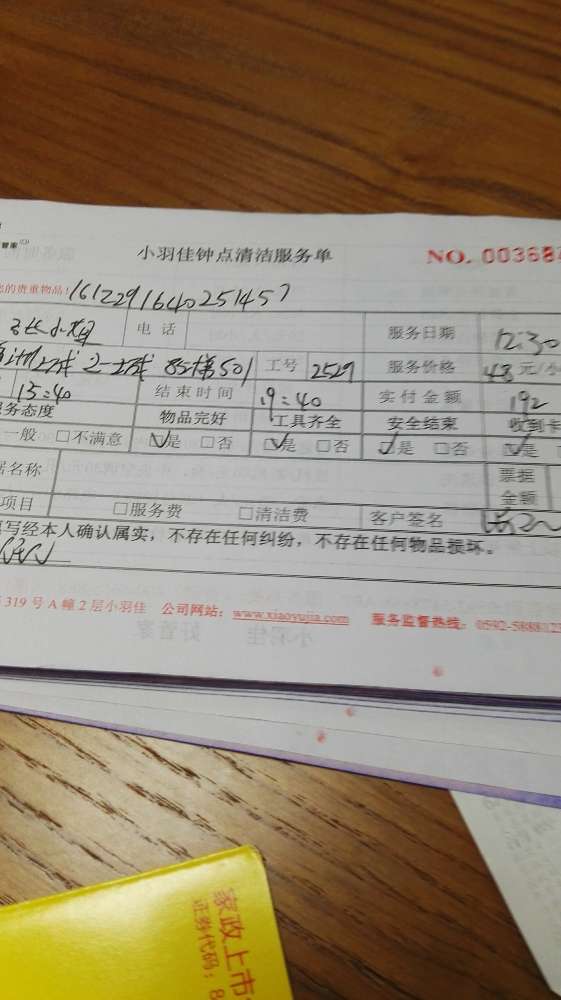 管家
小羽佳钟点清洁服务单 NO. 00368
您的贵重物品! 161229164025145
小姐 电话 服务日期 12:30
2-2 501 工号 2529 服务价格 48 元/小
15:40 结束时间 19:40 实付金额 192
服务态度 物品完好 工具齐全 安全结束 收到卡
一般 □不满意 ☑是 □否 ☑是 □否 ☑是 □否 ☑是
据名称 票据金额
项目 □服务费 □清洁费 客户签名
填写经本人确认属实,不存在任何纠纷,不存在任何物品损坏。
319号A幢2层小羽佳 公司网站:www.xiaoyujia.com 服务监督热线:0592-5888123
家政上市
证券代码:8